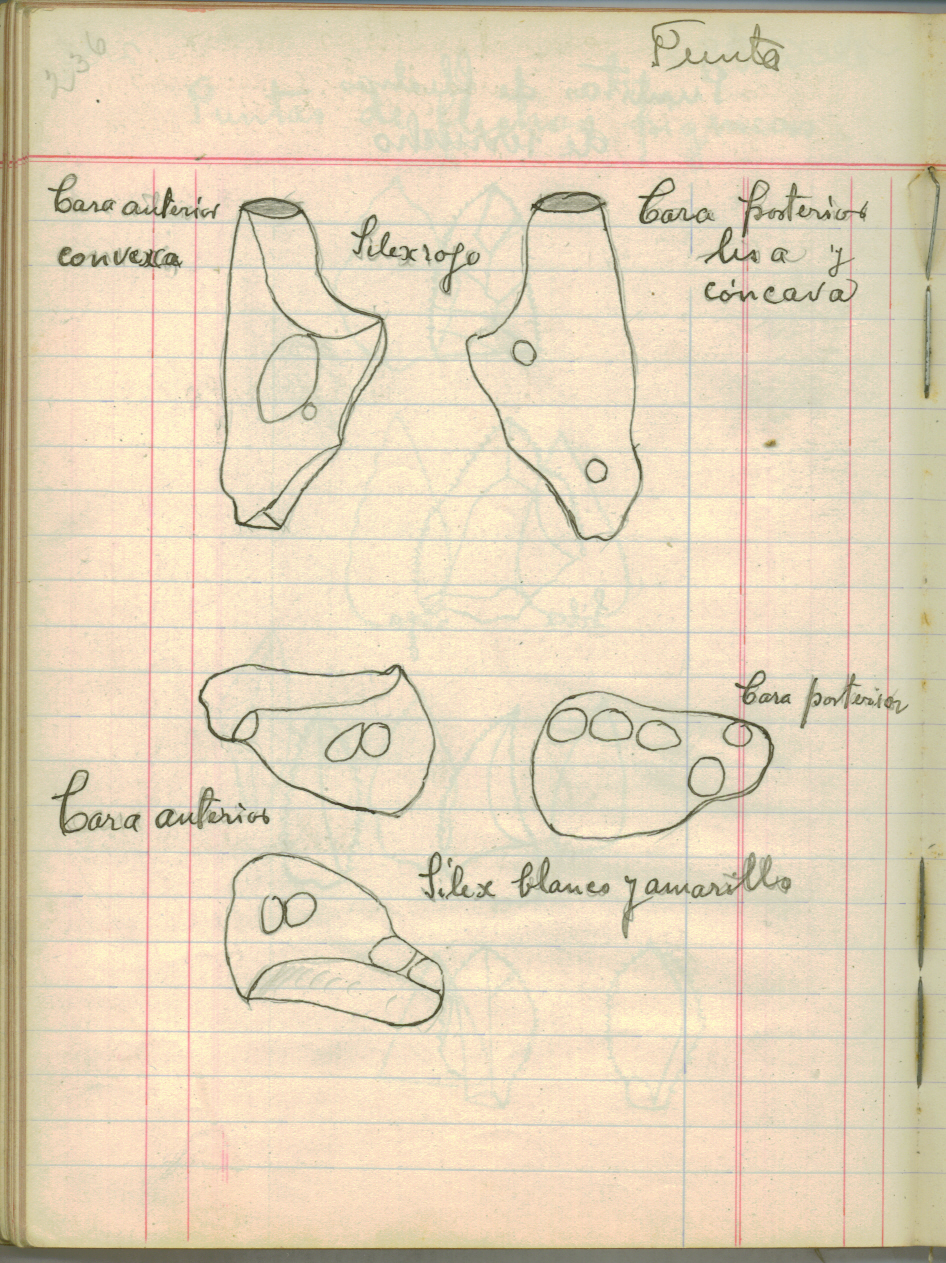 Punta
Cara anterior
convexa
Silex rojo
Cara posterior
lisa y
cóncava
Cara posterior
Cara anterior
Sílex blanco y amarillo